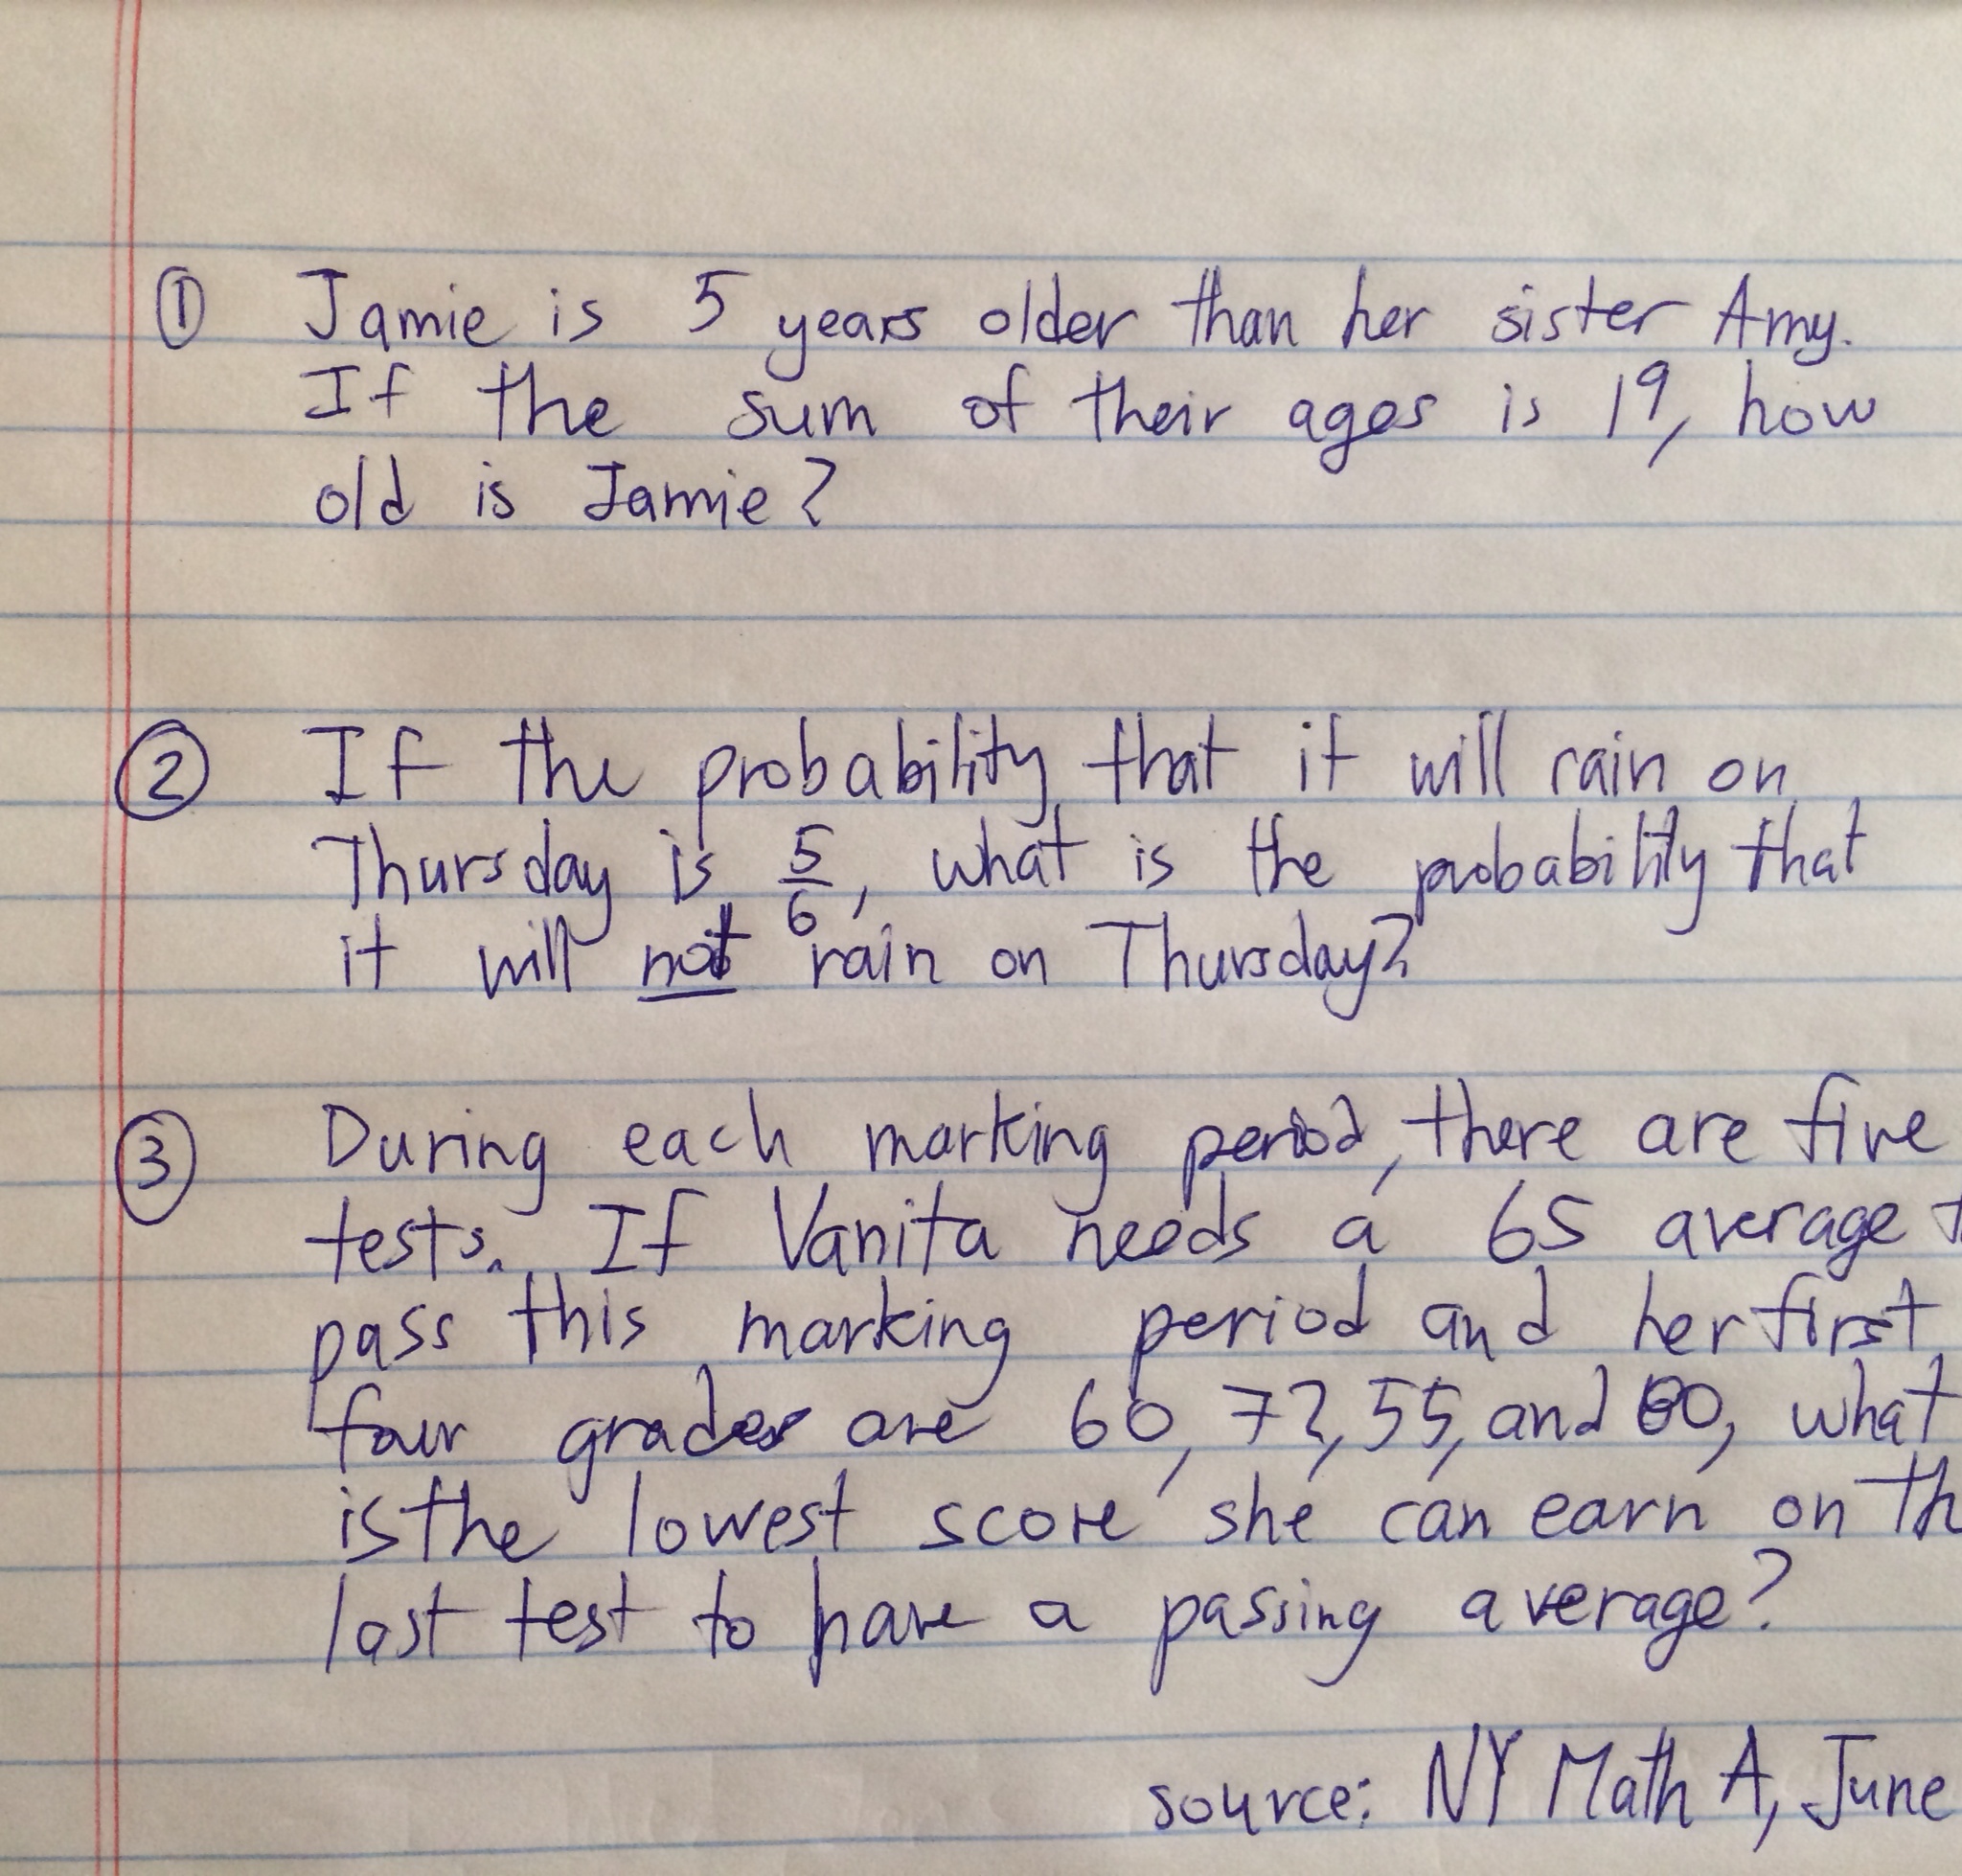 ① Jamie is 5 years older than her sister Amy.
If the sum of their ages is 19, how
old is Jamie?
② If the probability that it will rain on
Thursday is 5/6, what is the probability that
it will not rain on Thursday?
③ During each marking period, there are five
tests. If Vanita needs a 65 average
pass this marking period and her first
four grades are 60, 72, 55, and 80, what
is the lowest score she can earn on th
last test to have a passing average?
source: NY Math A, June